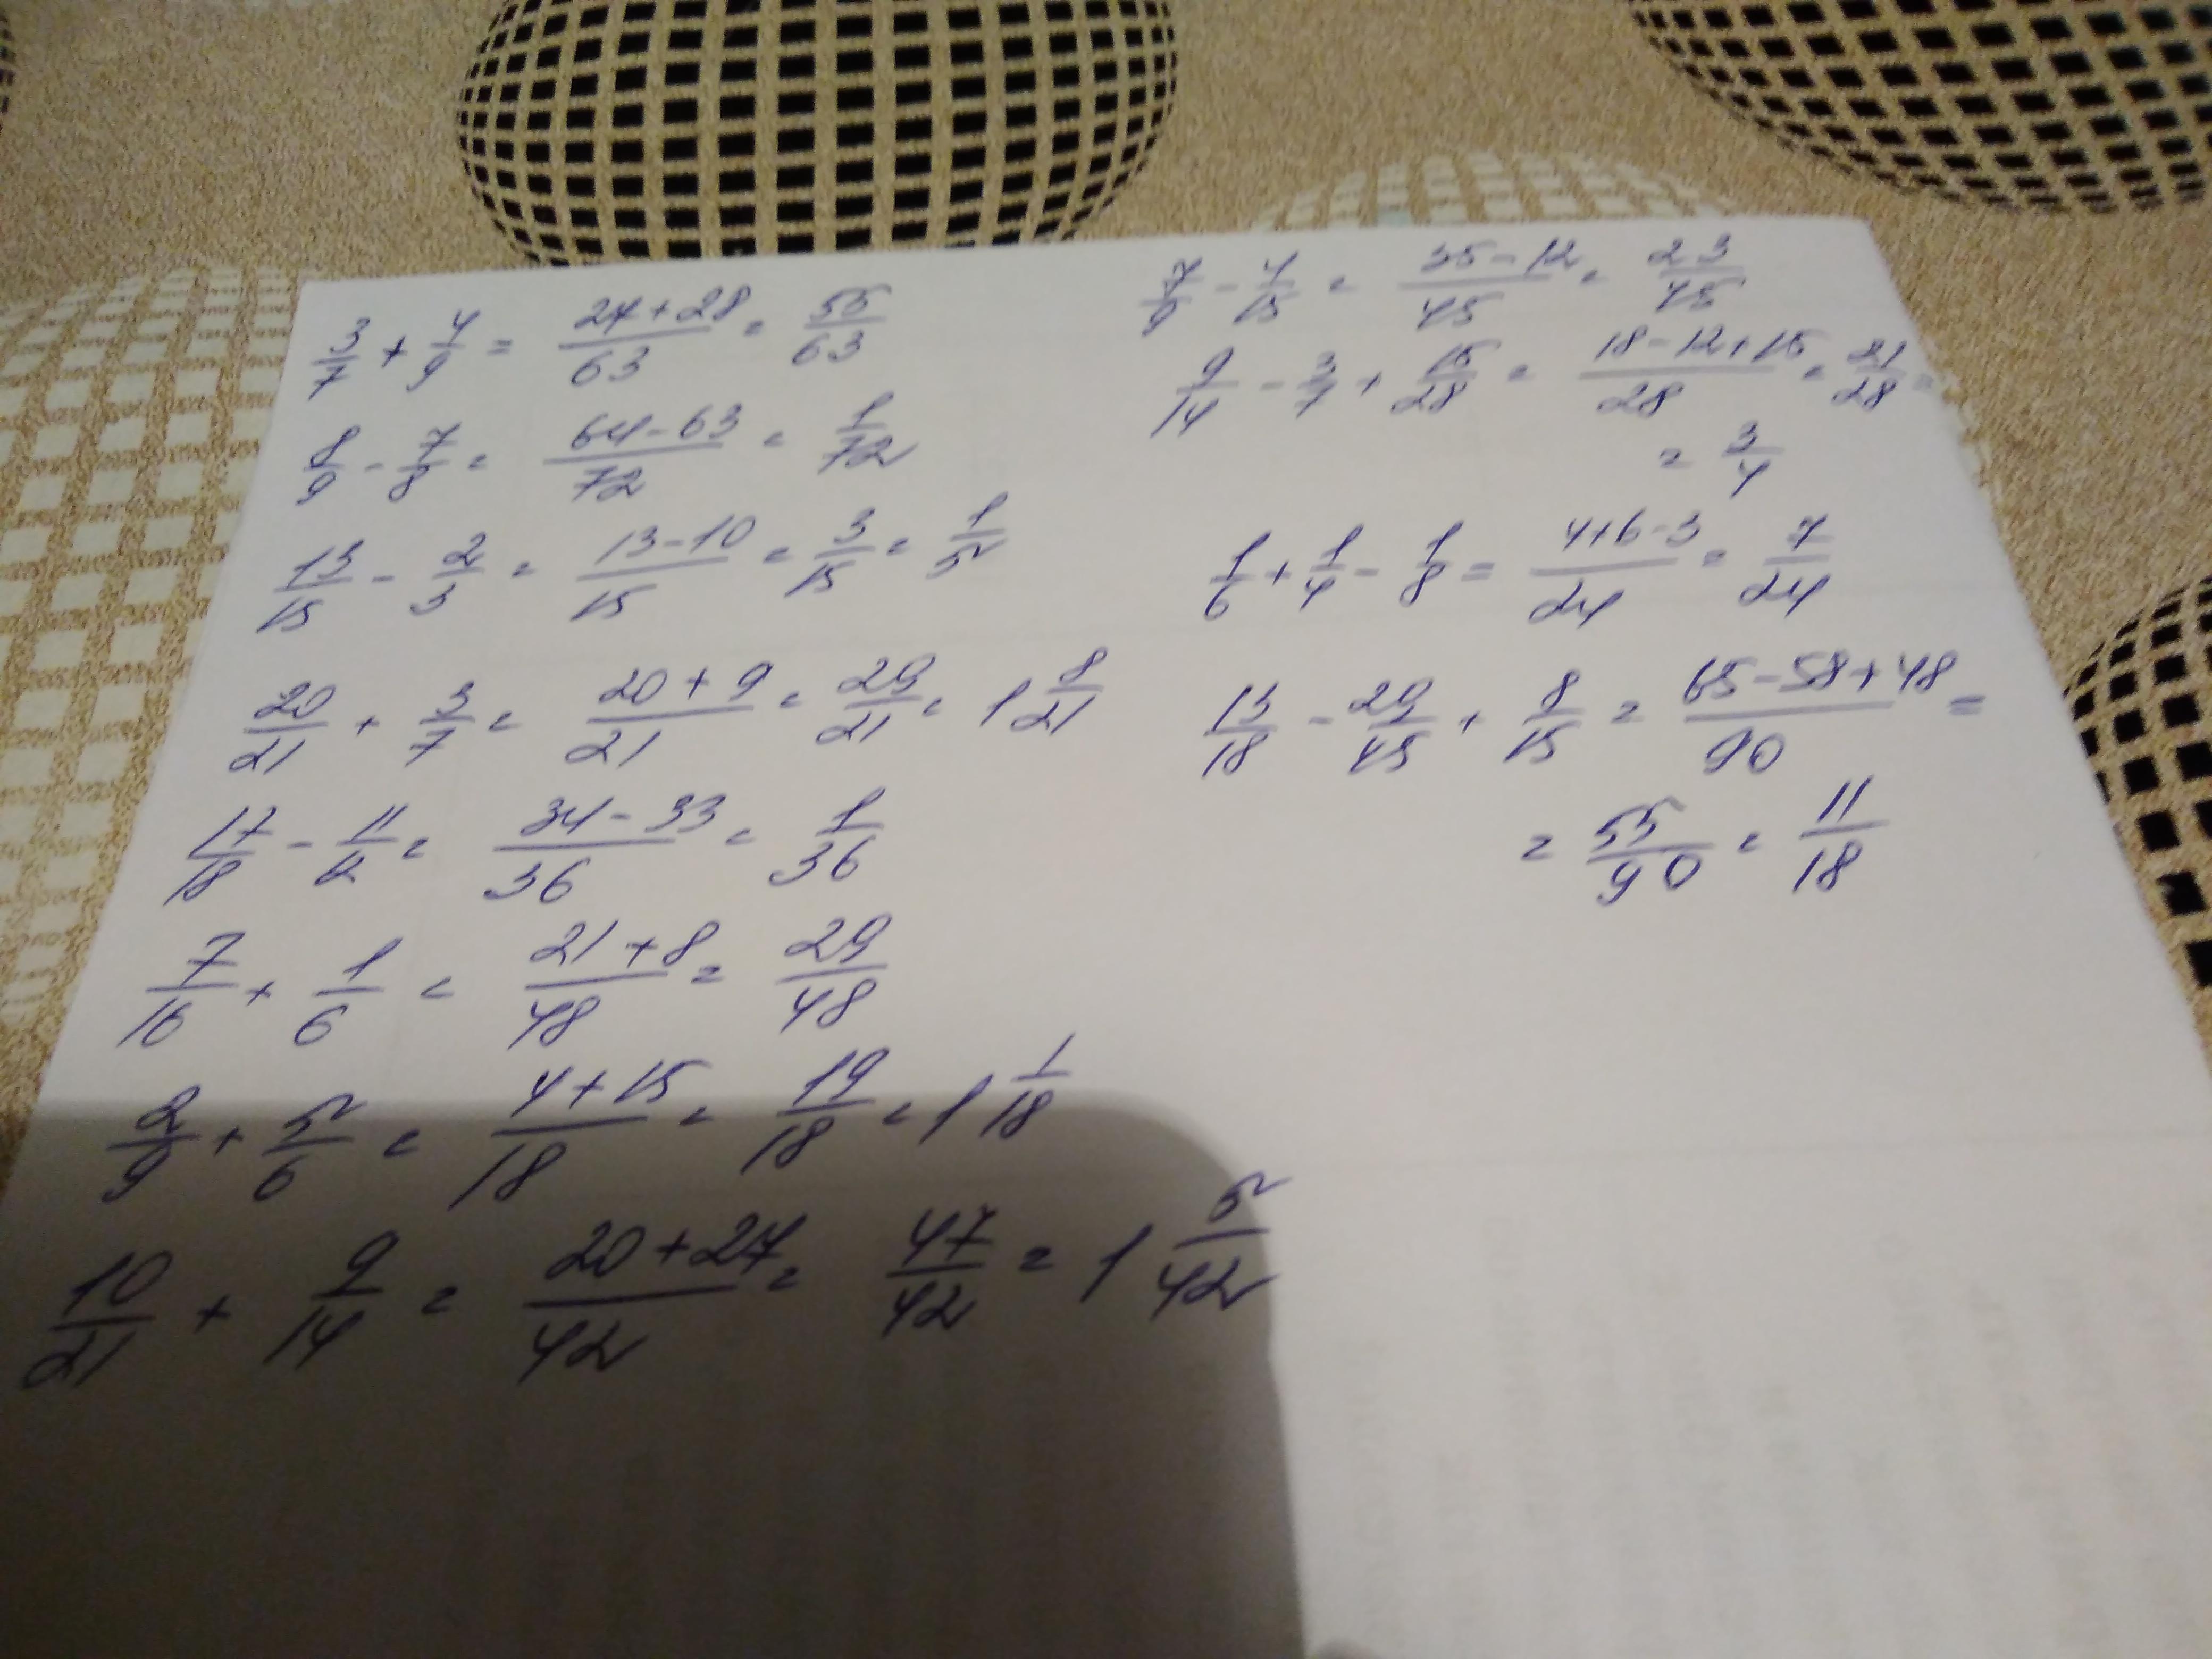 3/7 + 4/9 = (27+28)/63 = 55/63
8/9 - 7/8 = (64-63)/72 = 1/72
13/15 - 2/3 = (13-10)/15 = 3/15 = 1/5
20/21 + 3/7 = (20+9)/21 = 29/21 = 1 8/21
17/18 - 11/12 = (34-33)/36 = 1/36
7/16 + 1/6 = (21+8)/48 = 29/48
2/9 + 5/6 = (4+15)/18 = 19/18 = 1 1/18
10/21 + 9/14 = (20+27)/42 = 47/42 = 1 5/42
7/9 - 4/15 = (35-12)/45 = 23/45
9/14 - 3/7 + 15/28 = (18-12+15)/28 = 21/28 =
= 3/4
1/6 + 1/4 - 1/8 = (4+6-3)/24 = 7/24
13/18 - 29/45 + 8/15 = (65-58+48)/90 =
= 55/90 = 11/18